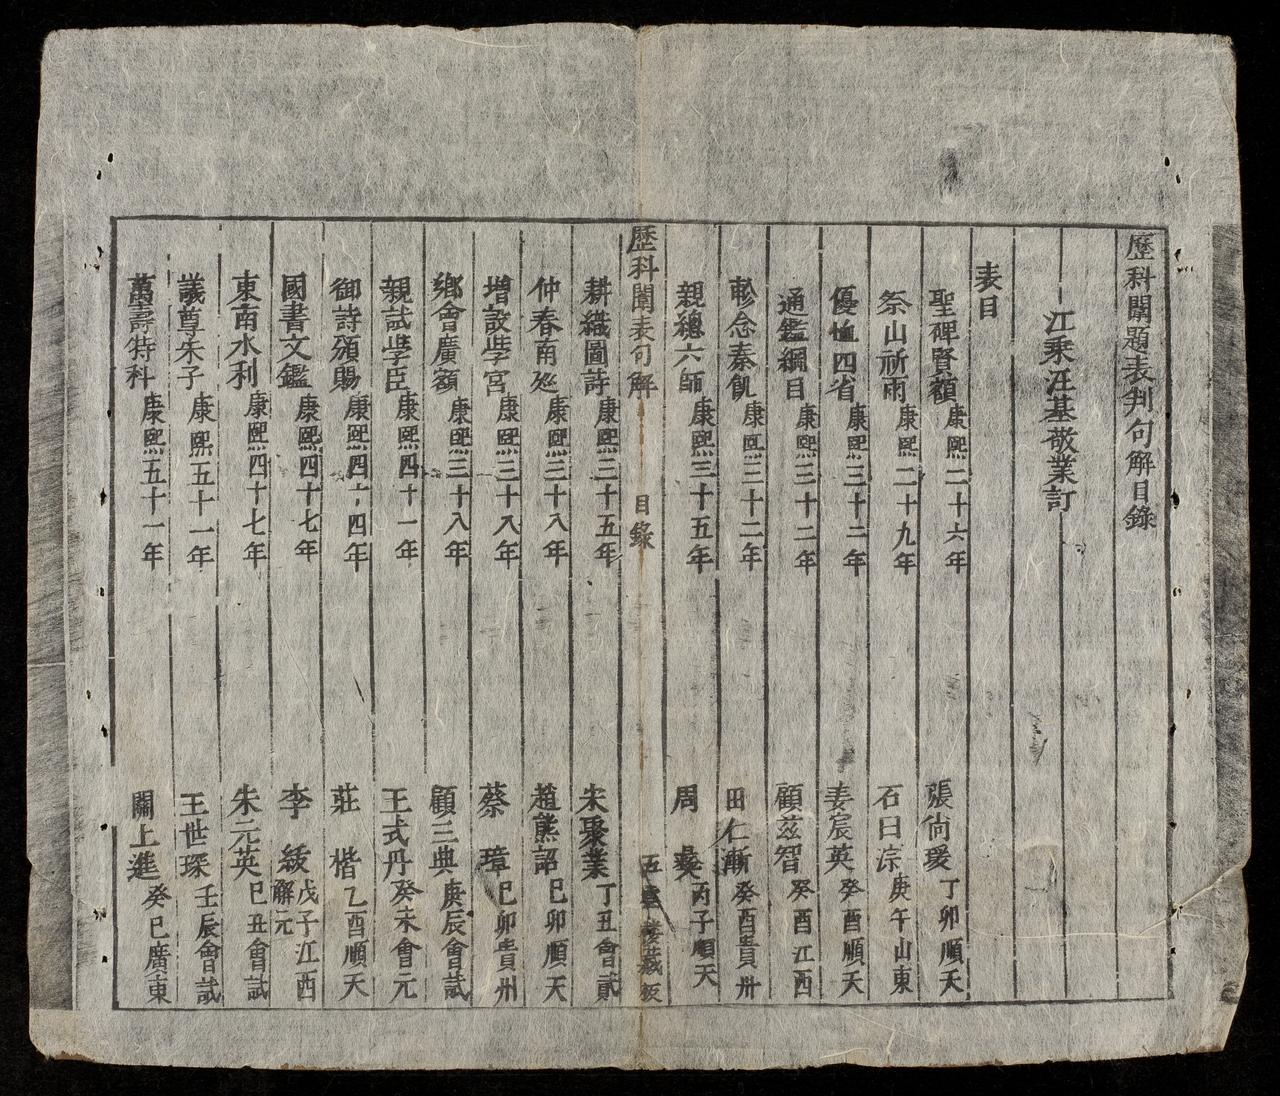 歷科闈題表判句解目錄
江乘汪基敬業訂
表目
聖碑賢額 康熙二十六年 張尙瑗 丁卯順天
祭山祈雨 康熙二十九年 石曰淙 庚午山東
優恤四省 康熙三十二年 姜宸英 癸酉順天
通鑑綱目 康熙三十二年 顧茲智 癸酉江西
軫念秦飢 康熙三十二年 田仁漸 癸酉貴州
親總六師 康熙三十五年 周彝 丙子順天
歷科闈表句解 目錄
耕織圖詩 康熙三十五年 朱聚業 丁丑會試
仲春南廵 康熙三十八年 趙熊詔 己卯順天
增設學宮 康熙三十八年 蔡璋 己卯貴州
鄉會廣額 康熙三十八年 顧三典 庚辰會試
親試學臣 康熙四十一年 王式丹 癸未會元
御詩頒賜 康熙四十四年 莊楷 乙酉順天
國書文鑑 康熙四十七年 李紱 戊子江西解元
東南水利 康熙四十七年 朱元英 己丑會試
議尊朱子 康熙五十一年 王世琛 壬辰會試
萬壽特科 康熙五十一年 關上進 癸巳廣東